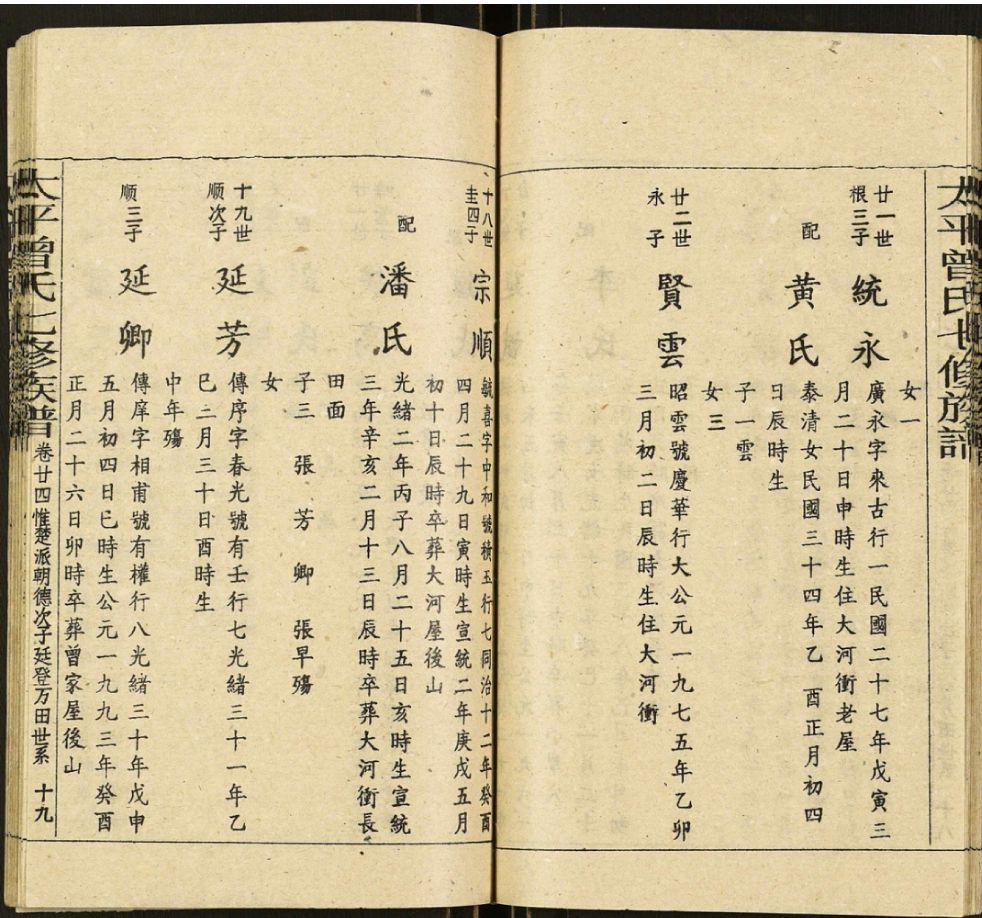 太平曾氏七修族譜
女一
廿一世
根三子
統永
廣永字來古行一民國二十七年戊寅三
月二十日申時生住大河衝老屋
配
黄氏
泰清女民國三十四年乙酉正月初四
日辰時生
子一雲
女三
廿二世
永子
賢雲
昭雲號慶華行大公元一九七五年乙卯
三月初二日辰時生住大河衝
十八世
圭四子
宗順
毓喜字中和號積玉行七同治十二年癸酉
四月二十九日寅時生宣統二年庚戌五月
初十日辰時卒葬大河屋後山
配
潘氏
光緒二年丙子八月二十五日亥時生宣統
三年辛亥二月十三日辰時卒葬大河衝長
田面
子三 張 芳 卿 張早殤
女
十九世
順次子
延芳
傳序字春光號有壬行七光緒三十一年乙
巳二月三十日酉時生
中年殤
順三子
延卿
傳庠字相甫號有權行八光緒三十年戊申
五月初四日巳時生公元一九九三年癸酉
正月二十六日卯時卒葬曾家屋後山
太平曾氏七修族譜 卷廿四惟楚派朝德次子廷登万田世系 十九